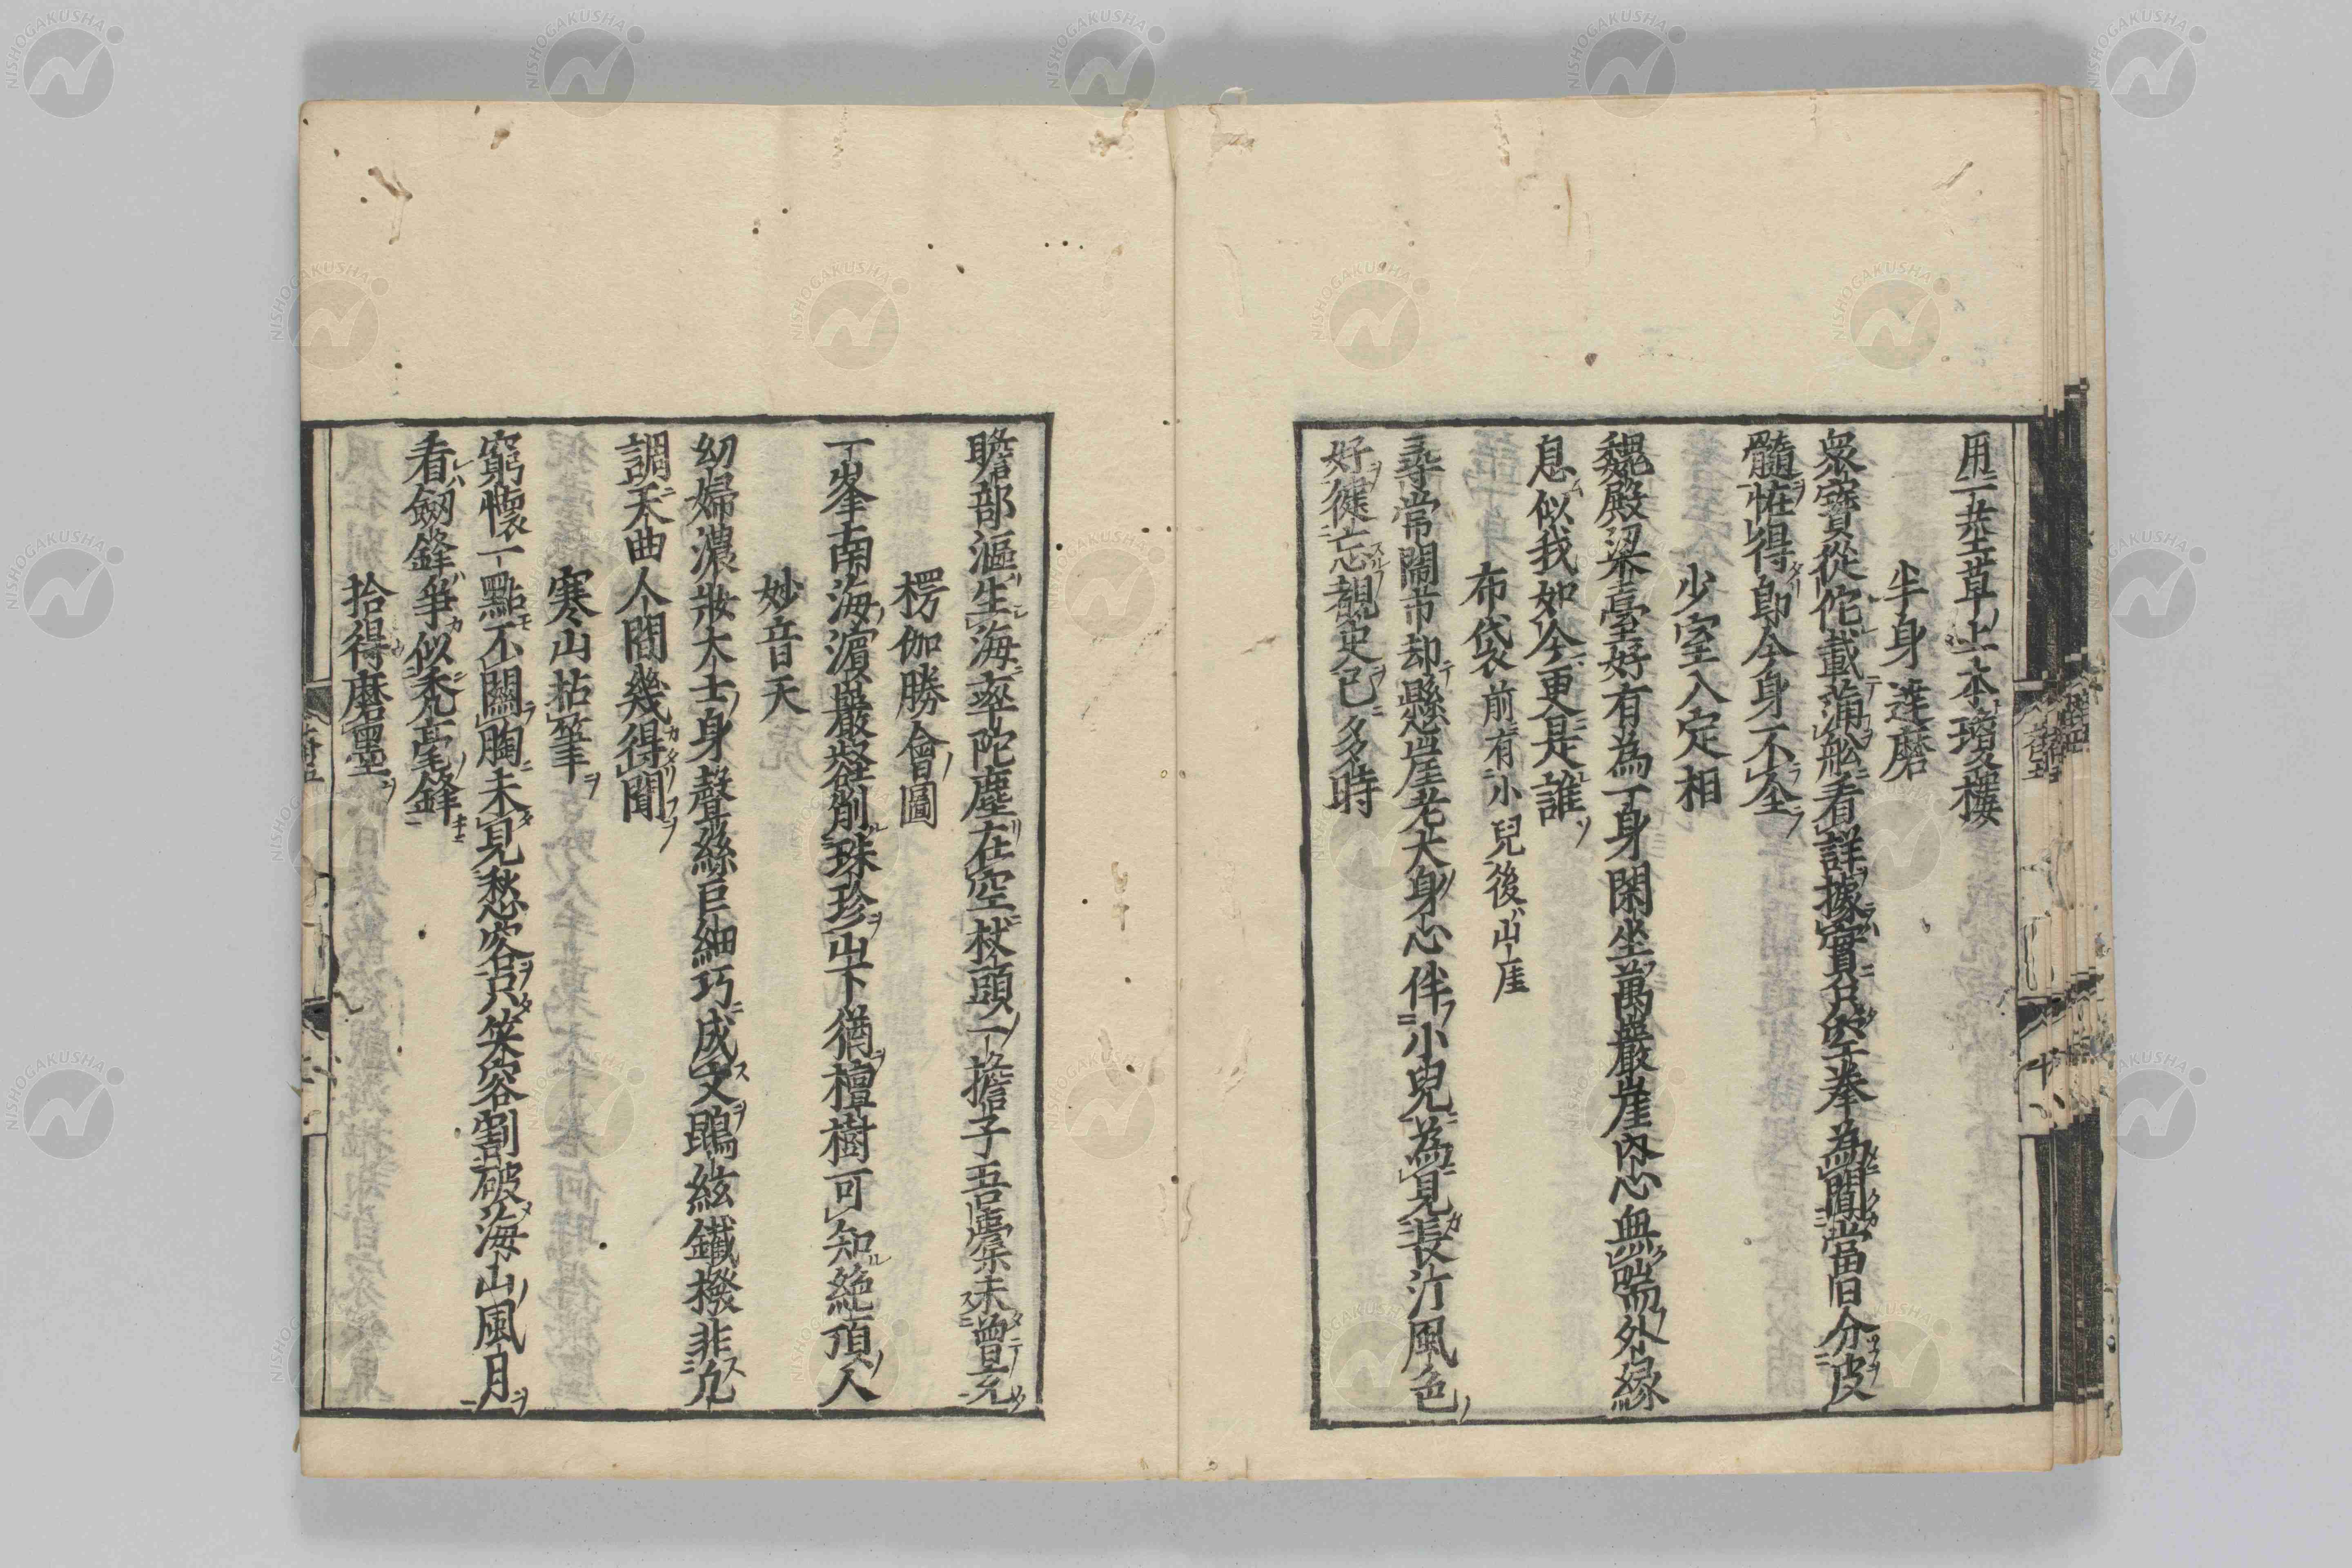 用一莖草上本瓊樓
半身達磨
衆寳從佗載蒲舩看詳據實只空拳為聞當旧分皮
髓恠得即今身不全
少室入定相
魏殿梁臺好有為一身閑坐萬嚴崖內心無喘外緣
息似我如今更是誰
布袋前有小兒後山崖
尋常鬧市却懸崖老大身心伴小兒為見長汀風色
好健忘覩史已多時
瞻部漚生海率陀塵在空杖頭一擔子吾橐未曾充
楞伽勝會圖
一峯南海濵嚴鬘削珠珍山下猶檀樹可知絶頂人
妙音天
幼婦濃妝大士身聲絲巨細巧成文鵾絃鐵撥非凢
調天曲人間幾得聞
寒山拈筆
窮懷一點不關胸未見愁容只笑容割破海山風月
看劔鋒爭似禿毫鋒
拾得磨墨
NISHOGAKUSHA